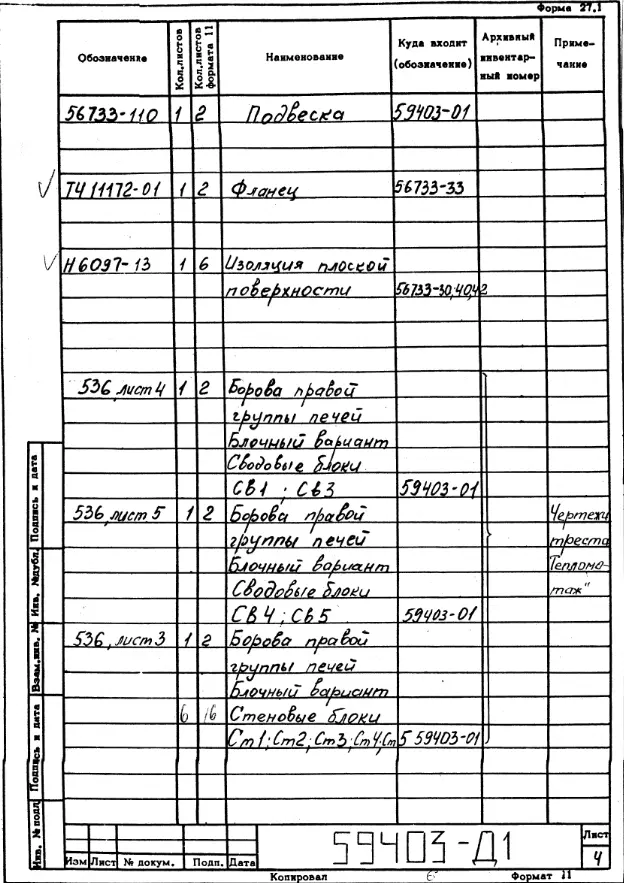 Форма 27.1
Обозначение Кол.листов Кол.листов формата 11 Наименование Куда входит (обозначение) Архивный инвентарный номер Примечание
56733-110 1 2 Подвеска 59403-01
ТЧ 11172-01 1 2 Фланец 56733-33
Н6097-13 1 6 Изоляция плоской
поверхности 56733-30,40,42
536, лист 4 1 2 Борова правой
группы печей
Блочный вариант
Сводовые блоки
СВ1 ; СВ3 59403-01
536, лист 5 1 2 Борова правой Чертежи
группы печей треста
Блочный вариант Тепломо-
Сводовые блоки таж"
СВ4 ; СВ5 59403-01
536, лист 3 1 2 Борова правой
группы печей
Блочный вариант
6 16 Стеновые блоки
Ст1; Ст2; Ст3; Ст4; Ст5 59403-01
Инв. № подл. Подпись и дата Взам.инв. № Инв. №дубл. Подпись и дата
Изм Лист № докум. Подп. Дата
59403-Д1
Лист
4
Копировал Формат 11